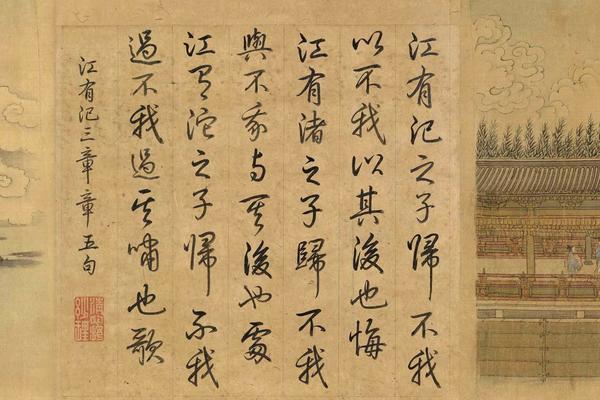 江有汜之子歸不我
以不我以其後也悔
江有渚之子歸不我
與不我与其後也處
江有沱之子歸不我
過不我過其嘯也歌
江有汜三章章五句